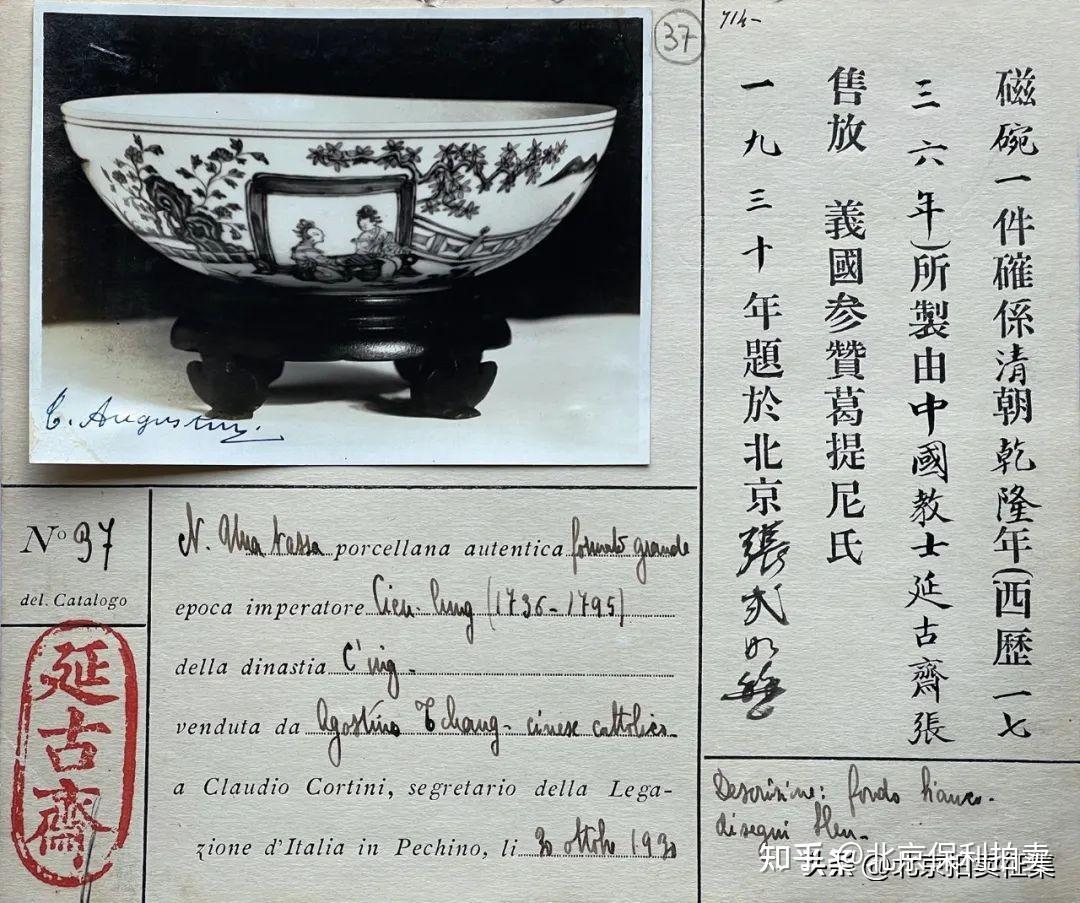 37
T. Augustin.
N° 37
del. Catalogo
延古齋
N. Una tassa porcellana autentica formato grande
epoca imperatore Cien-lung (1736-1795)
della dinastia C'ing-
venduta da Agostino Tchang - cinese cattolico-
a Claudio Cortini, segretario della Lega-
zione d'Italia in Pechino, li 30 ottobre 1930
磁碗一件確係清朝乾隆年(西歷一七
三六年)所製由中國教士延古齋張
售放 義國参贊葛提尼氏
一九三十年題於北京張
Descrizione: fondo bianco.
disegni bleu.
知乎 @北京保利拍卖
头条 @北京拍卖征集